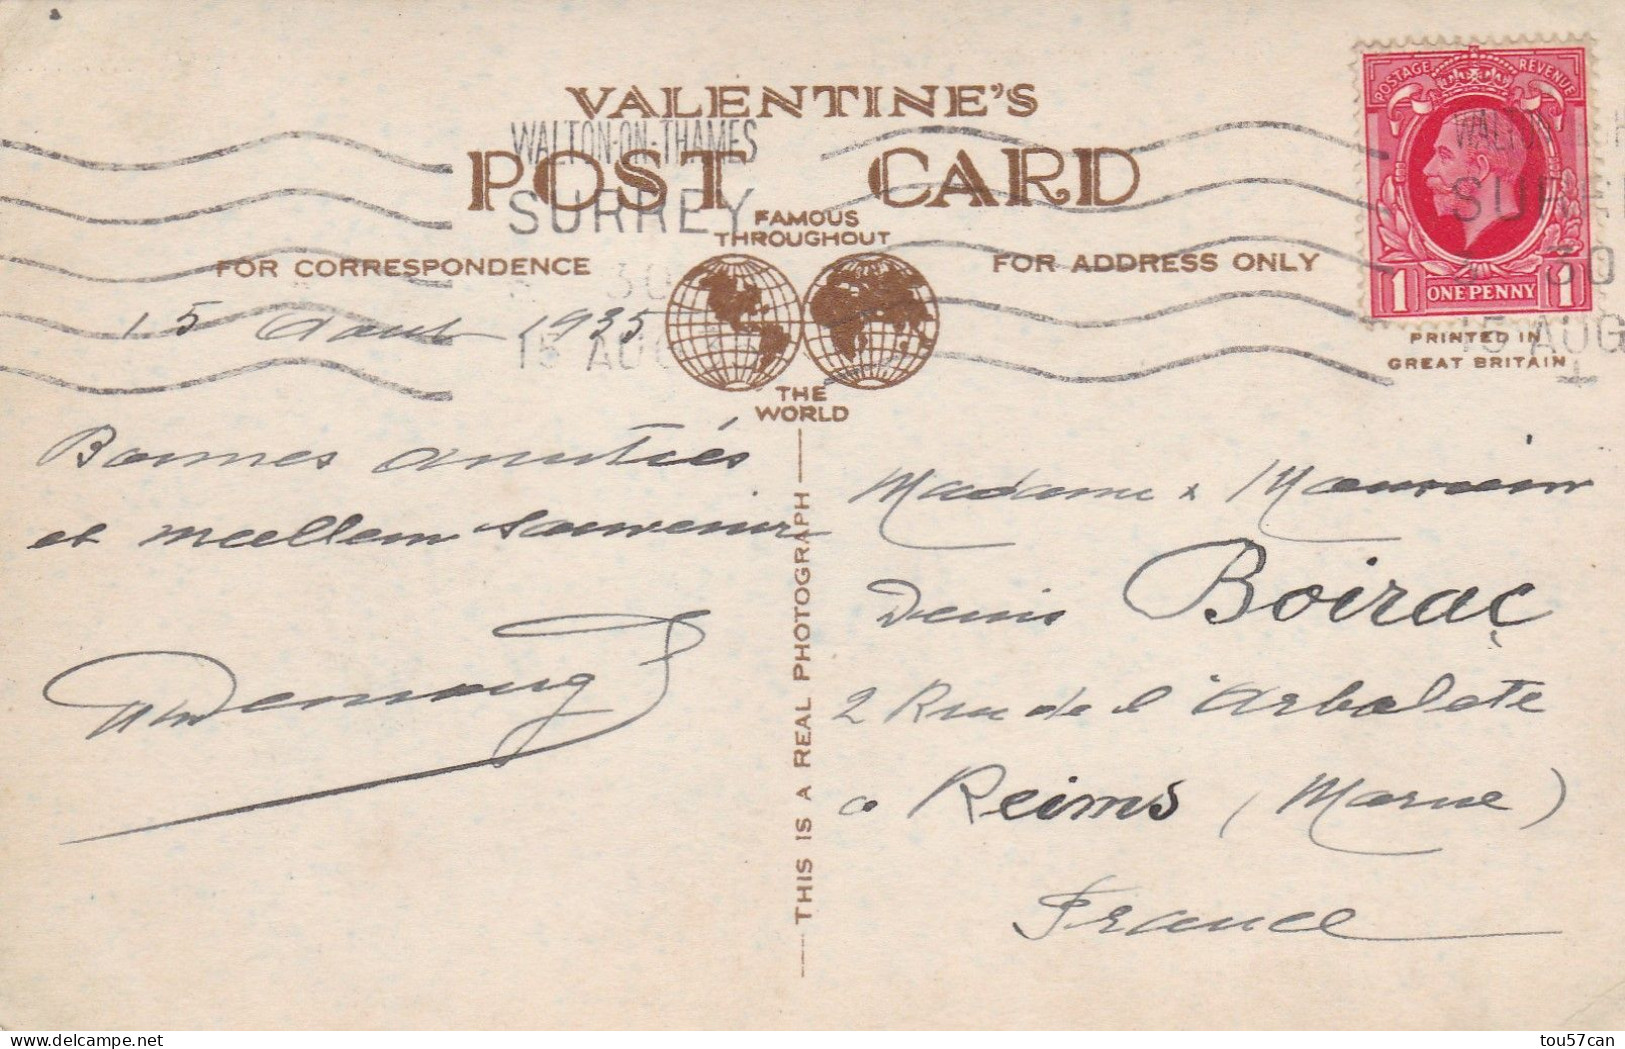 VALENTINE'S
POST CARD
FAMOUS
THROUGHOUT
THE
WORLD
FOR CORRESPONDENCE
FOR ADDRESS ONLY
WALTON-ON-THAMES
SURREY
30
15 AUG
POSTAGE REVENUE
1 ONE PENNY 1
WALTON
SURRE
30
15 AUG
PRINTED IN
GREAT BRITAIN
15 aout 1935
Bonnes amitiés
et meilleur souvenir
THIS IS A REAL PHOTOGRAPH
Madame &
Denis Boirac
2 Rue de l'Arbalete
a Reims (Marne)
France
tou57can